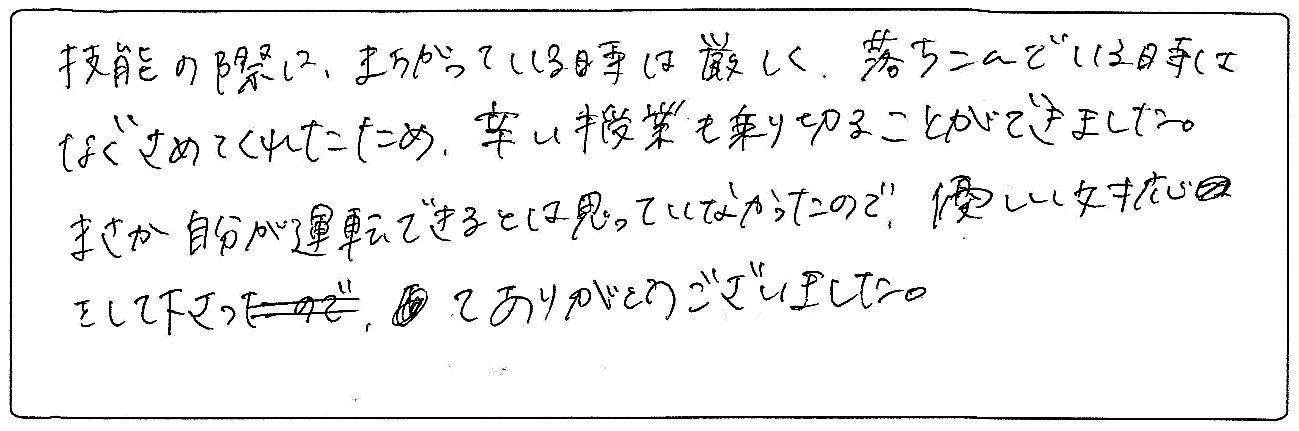 技能の際は、まちがっている時は厳しく、落ちこんでいる時は
なぐさめてくれたため、辛い授業も乗り切ることができました。
まさか自分が運転できるとは思っていなかったので、優しい対応
をして下さってありがとうございました。